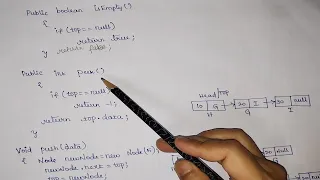 Public boolean isEmpty()
{
if (top == null)
return true;
return false;
}
Public int peek()
{
if (top == null)
return -1;
return top.data;
}
Void push(data)
{ Node newNode = new Node(
newNode.next = top;
top = newNode;
Head top
10 G 20 I 30 null
H G I
null